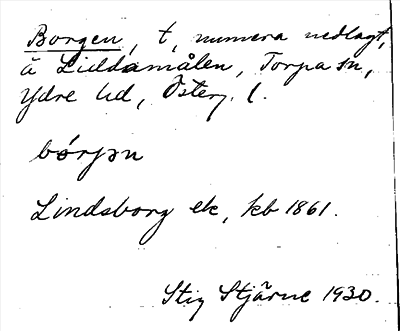 Borgen, t, numera nedlagt,
å Liddamålen, Torpa sn,
Ydre hd, Österg. l.
bórjən
Lindsborg ek, kb 1861.
Stig Stjärne 1930.